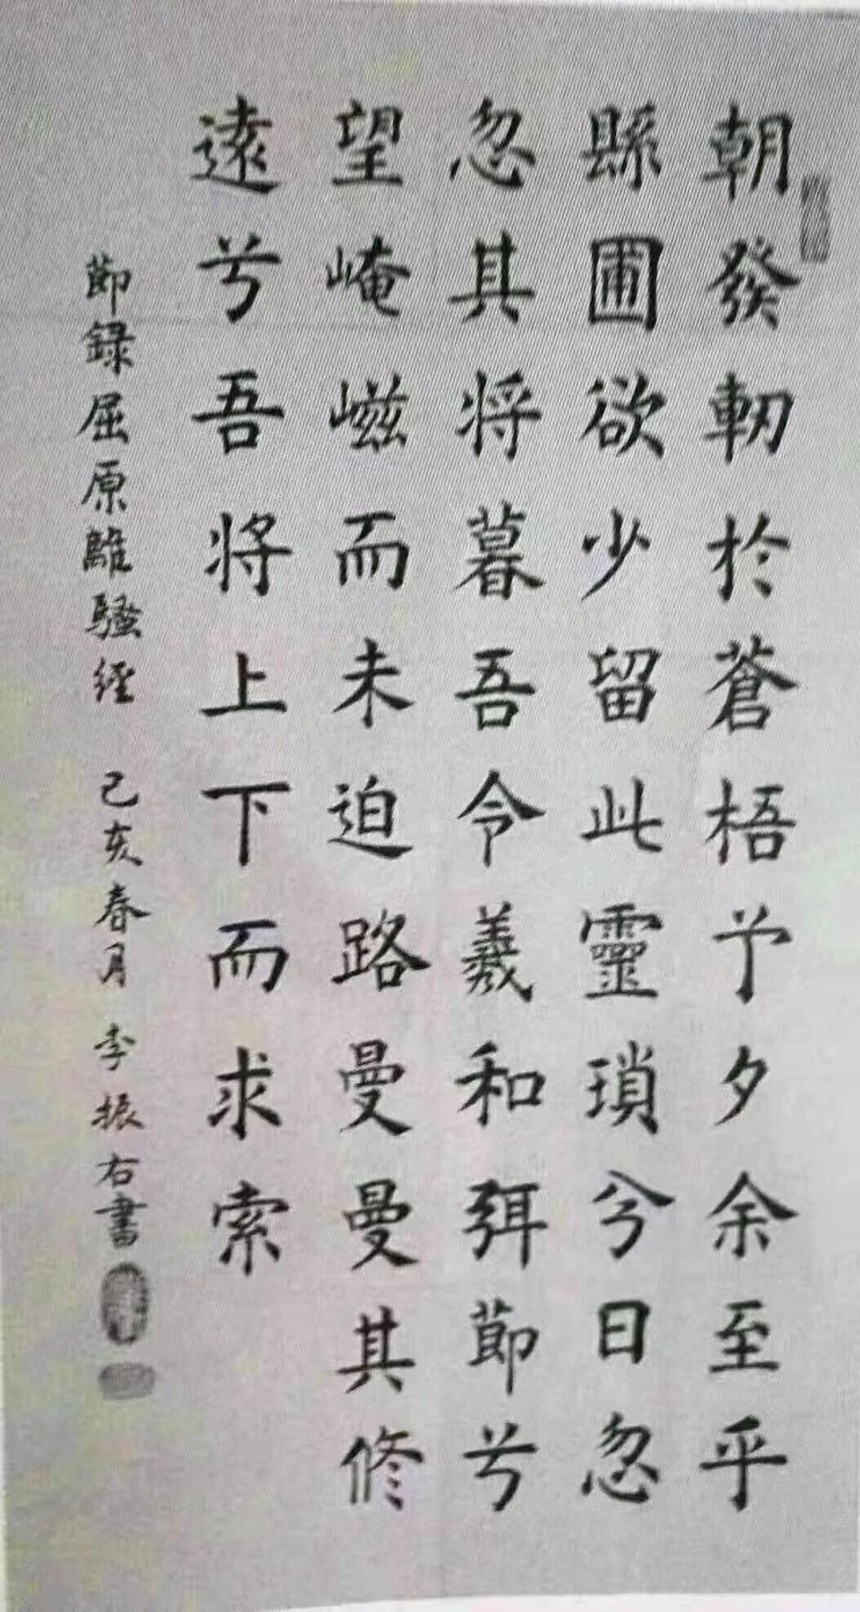 朝發軔於蒼梧兮夕余至乎
縣圃欲少留此靈瑣兮日忽
忽其將暮吾令羲和弭節兮
望崦嵫而未迫路曼曼其修
遠兮吾將上下而求索
節錄屈原離騷經 己亥春月 李振右書